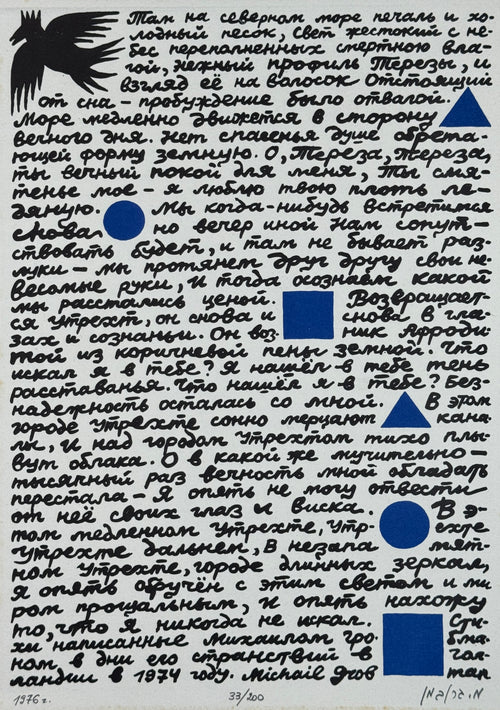 Там на северном море печаль и хо-
лодный песок, свет жестокий с не-
бес переполненных смертною вла-
гой, нежный профиль Терезы, и
взгляд её на волосок отстоящий
от сна – пробуждение было отвагой.
Море медленно движется в сторону
вечного дня. Нет спасенья душе обрета-
ющей форму земную. О, Тереза, Тереза,
ты вечный покой для меня, ты смя-
тенье мое – я люблю твою плоть ле-
дяную. Мы когда-нибудь встретимся
снова но вечер иной нам сопут-
ствовать будет, и там не бывает раз-
луки – мы протянем друг другу свои не-
весомые руки, и тогда осознаем какой
мы расстались ценой. Возвращает-
ся Утрехт, он снова и снова в гла-
зах и сознаньи. Он воз- ник Афроди-
той из коричневой пены земной. Что
искал я в тебе? Я нашёл в тебе тень
расставанья. Что нашёл я в тебе? Без-
надежность осталась со мной. В этом
городе Утрехте сонно мерцают кана-
лы, и над городом Утрехтом тихо плы-
вут облака. О в какой же мучительно –
тысячный раз вечность мной обладать
перестала – Я опять не могу отвести
от неё своих глаз и виска. В э-
том медленном Утрехте, Утр- ехте
Утрехте дальнем, в незапа мят-
ном Утрехте, городе длинных зеркал,
я опять обручён с этим светом и ми
ром прощальным, и опять нахожу
то, что я никогда не искал. Сти-
хи написанные Михаилом Гро бма-
ном в дни его странствий в Гол-
ландии в 1974 году. Michail Grob man
1976 г. 33/200 מ. גרובמן